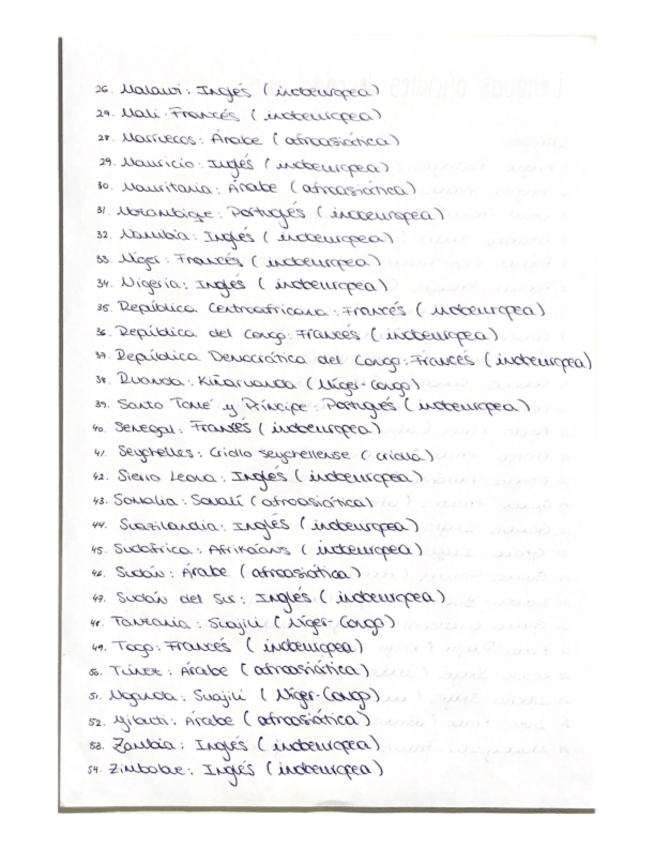 26. Malawi: Inglés (indoeuropea)
27. Mali: Francés (indoeuropea)
28. Marruecos: Árabe (afroasiática)
29. Mauricio: Inglés (indoeuropea)
30. Mauritania: Árabe (afroasiática)
31. Mozambique: Portugués (indoeuropea)
32. Namibia: Inglés (indoeuropea)
33. Níger: Francés (indoeuropea)
34. Nigeria: Inglés (indoeuropea)
35. República Centroafricana: Francés (indoeuropea)
36. República del Congo: Francés (indoeuropea)
37. República Democrática del Congo: Francés (indoeuropea)
38. Ruanda: Kiñaruanda (Níger-Congo)
39. Santo Tomé y Príncipe: Portugués (indoeuropea)
40. Senegal: Francés (indoeuropea)
41. Seychelles: Criollo seychellense (criolla)
42. Sierra Leona: Inglés (indoeuropea)
43. Somalia: Somalí (afroasiática)
44. Suazilandia: Inglés (indoeuropea)
45. Sudáfrica: Afrikáans (indoeuropea)
46. Sudán: Árabe (afroasiática)
47. Sudán del Sur: Inglés (indoeuropea)
48. Tanzania: Suajili (Níger-Congo)
49. Togo: Francés (indoeuropea)
50. Túnez: Árabe (afroasiática)
51. Uganda: Suajili (Níger-Congo)
52. Yibuti: Árabe (afroasiática)
53. Zambia: Inglés (indoeuropea)
54. Zimbabue: Inglés (indoeuropea)